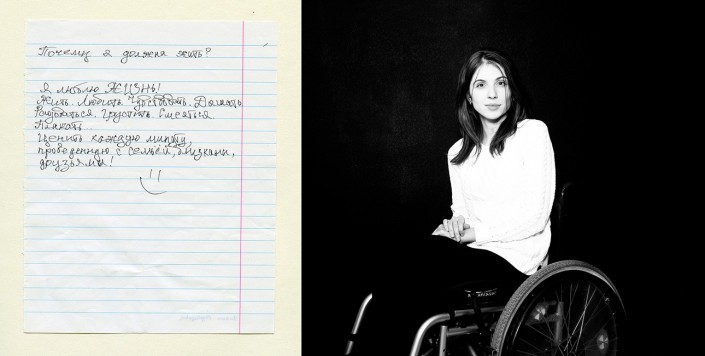 Почему я должна жить?
Я люблю ЖИЗНЬ!
Жить. Любить. Чувствовать. Думать.
Радоваться. Грустить. Смеяться
Плакать...
Ценить каждую минуту,
проведенную с семьёй, близкими,
друзьями!